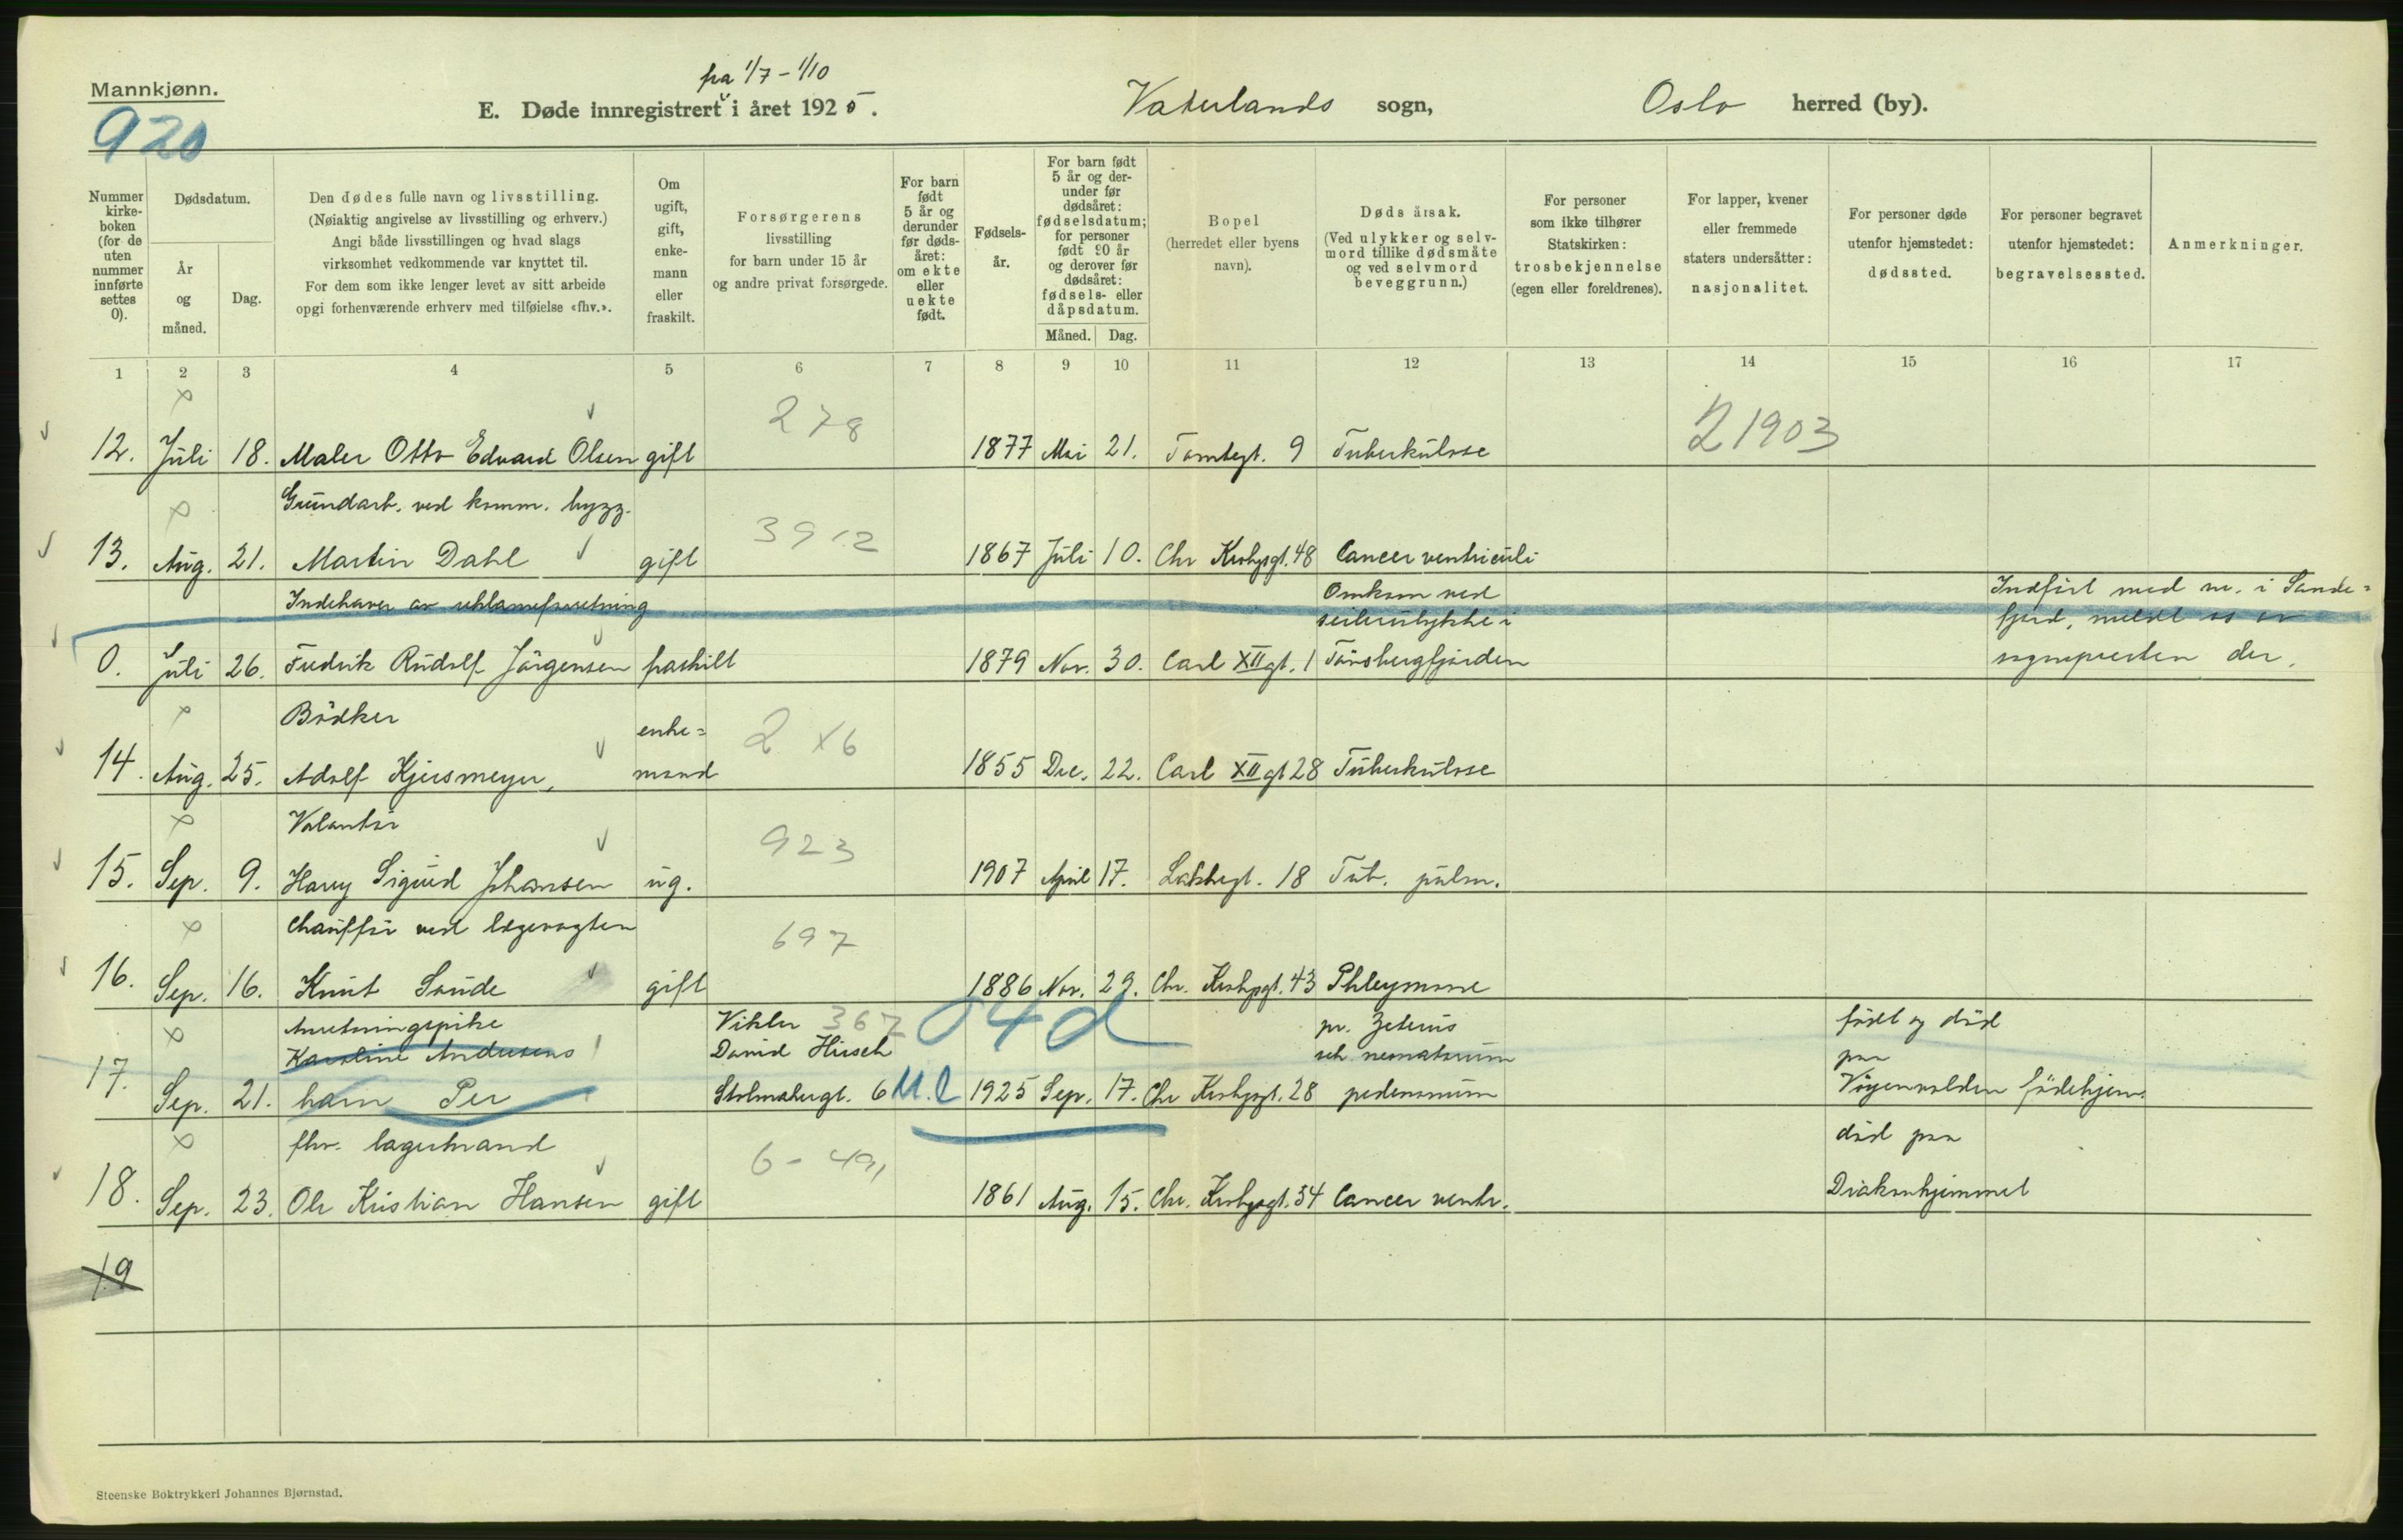 Mannkjønn.
920
fra 1/7 - 1/10
E. Døde innregistrert i året 1925.
Vaterlands sogn, Oslo herred (by).
Nummer kirke-boken (for de uten nummer innførte settes 0).
Dødsdatum.
År og måned.
Dag.
Den dødes fulle navn og livsstilling.
(Nøiaktig angivelse av livsstilling og erhverv.)
Angi både livsstillingen og hvad slags
virksomhet vedkommende var knyttet til.
For dem som ikke lenger levet av sitt arbeide
opgi forhenværende erhverv med tilføielse «fhv.».
Om ugift, gift, enke-mann eller fraskilt.
Forsørgerens
livsstilling
for barn under 15 år
og andre privat forsørgede.
For barn født 5 år og derunder før døds-året: om ekte eller uekte født.
Fødsels-år.
For barn født 5 år og der-under før dødsåret: fødselsdatum; for personer født 90 år og derover før dødsåret: fødsels- eller dåpsdatum.
Måned. Dag.
Bopel
(herredet eller byens
navn).
Dødsårsak.
(Ved ulykker og selv-
mord tillike dødsmåte
og ved selvmord
beveggrunn.)
For personer
som ikke tilhører
Statskirken:
trosbekjennelse
(egen eller foreldrenes).
For lapper, kvener
eller fremmede
staters undersåtter:
nasjonalitet.
For personer døde
utenfor hjemstedet:
dødssted.
For personer begravet
utenfor hjemstedet:
begravelsessted.
Anmerkninger.
1 2 3 4 5 6 7 8 9 10 11 12 13 14 15 16 17
278
21903
12. Juli 18. Maler Otto Edvard Olsen gift 1877 Mai 21. Tomtegt. 9 Tuberkulose
Grundarb. ved komm. bygg.
3912
13. Aug. 21. Martin Dahl gift 1867 Juli 10. Chr Krohgsgt. 48 Cancer ventriculi
Indehaver av reklameforretning Omkom ved Indført med nr. i Sande=
seilerulykke i fjord, meldt os av
0. Juli 26. Fredrik Rudolf Jörgensen fraskilt 1879 Nov. 30. Carl XII gt. 1 Tönsbergfjorden sognepresten der.
Bödker enke=
2 x6
14. Aug. 25. Adolf Kjersmeyer, mand 1855 Dec. 22. Carl XII gt 28 Tuberkulose
Volontör
923
15. Sep. 9. Harry Sigurd Johansen ug. 1907 April 17. Lakkegt. 18 Tub. pulm.
Chaufför ved lægevagten
697
16. Sep. 16. Knut Sande gift 1886 Nov. 29. Chr. Krohgsgt. 43 Phlegmone
Anretningspike Vikler 367 04d født og död
Karoline Andersens David Hirsch paa
17. Sep. 21. barn Per Stolmakergt. 6 U.e 1925 Sep. 17. Chr Krohgsgt. 28 Vöyenvolden födehjem.
fhv. lagermand död paa
18. Sep. 23. Ole Kristian Hansen gift 1861 Aug. 15. Chr. Krohgsgt. 34 Cancer ventr. Diakonhjemmet
19
Steenske Boktrykkeri Johannes Bjørnstad.